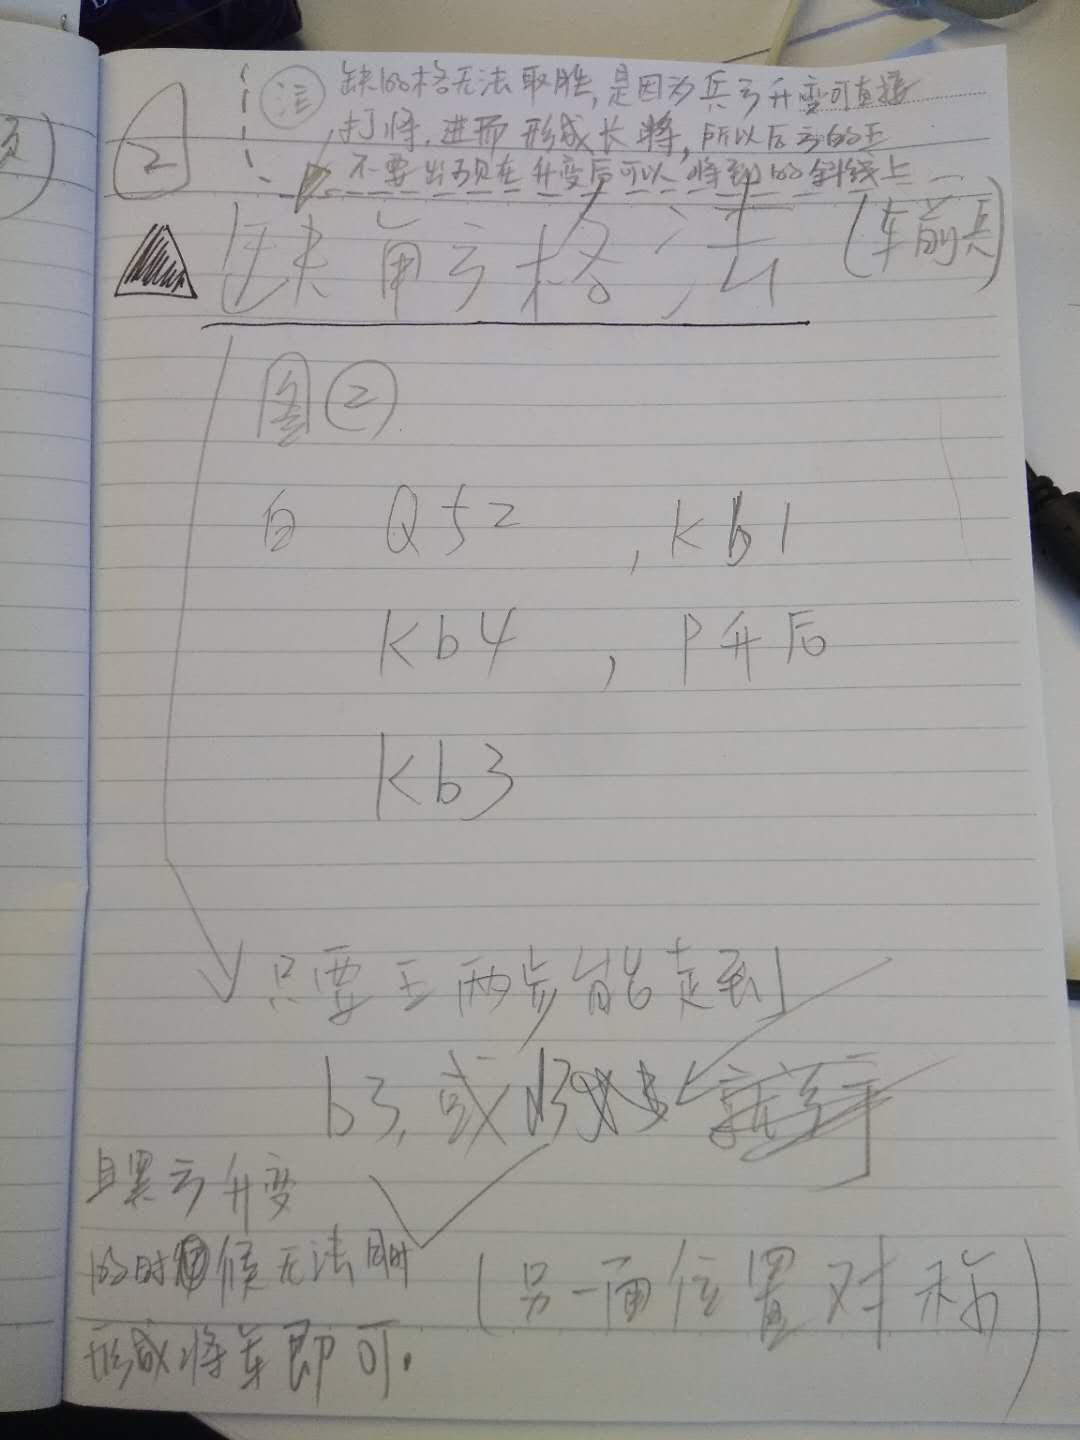 2
注 缺的格无法取胜,是因为兵方升变可直接
打将,进而形成长将,所以后方的王
不要出现在升变后可以将到的斜线上
缺角方格法 (车前兵)
图②
白 Q52 , Kb1
Kb4 , P升后
Kb3
只要王两步能走到
b3,或
且黑方升变
的时候无法同时
形成将军即可.
(另一面位置对称)